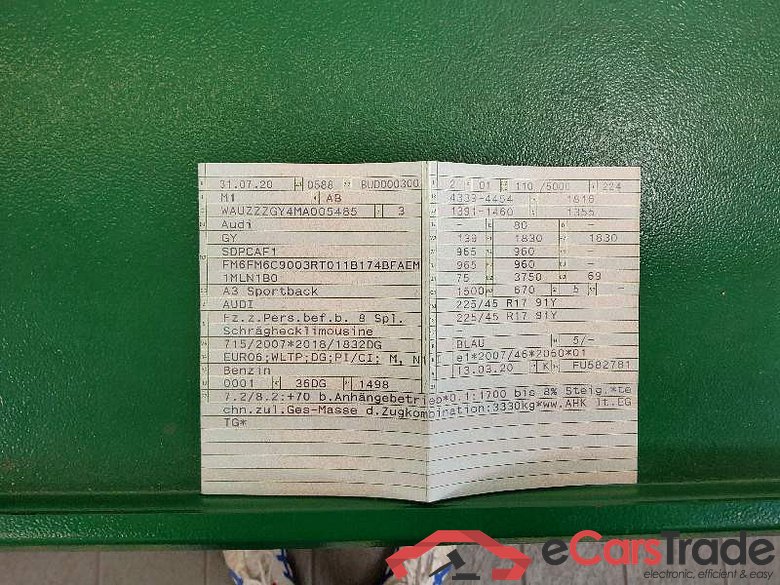 31.07.20 0588 BUD000300
M1 AB
WAUZZZGY4MA005485 3
Audi
GY
SDPCAF1
FM6FM6C9003RT011B174BFAEM
1MLN1B0
A3 Sportback
AUDI
Fz.z.Pers.bef.b. 8 Spl.
Schrägheckl​imousine
715/2007*2018/1832DG
EURO6;WLTP;DG;PI/CI; M, N1
Benzin
0001 36DG 1498
2 01 110 /5000 224
4339-4454 1816
1391-1460 1355
- 80 -
139 1830 1830
965 960
965 960 -
75 3750 69
1500 670 5 -
225/45 R17 91Y
225/45 R17 91Y
-
BLAU 5/-
e1*2007/46*2060*01
13.03.20 K FU582781
7.2/8.2:+70 b.Anhängebetrieb*0.1:1700 bis 8% Steig.*te
chn.zul.Ges-Masse d.Zugkombination:3330kg*ww.AHK lt.EG
TG*
eCarsTrade
electronic, efficient & easy